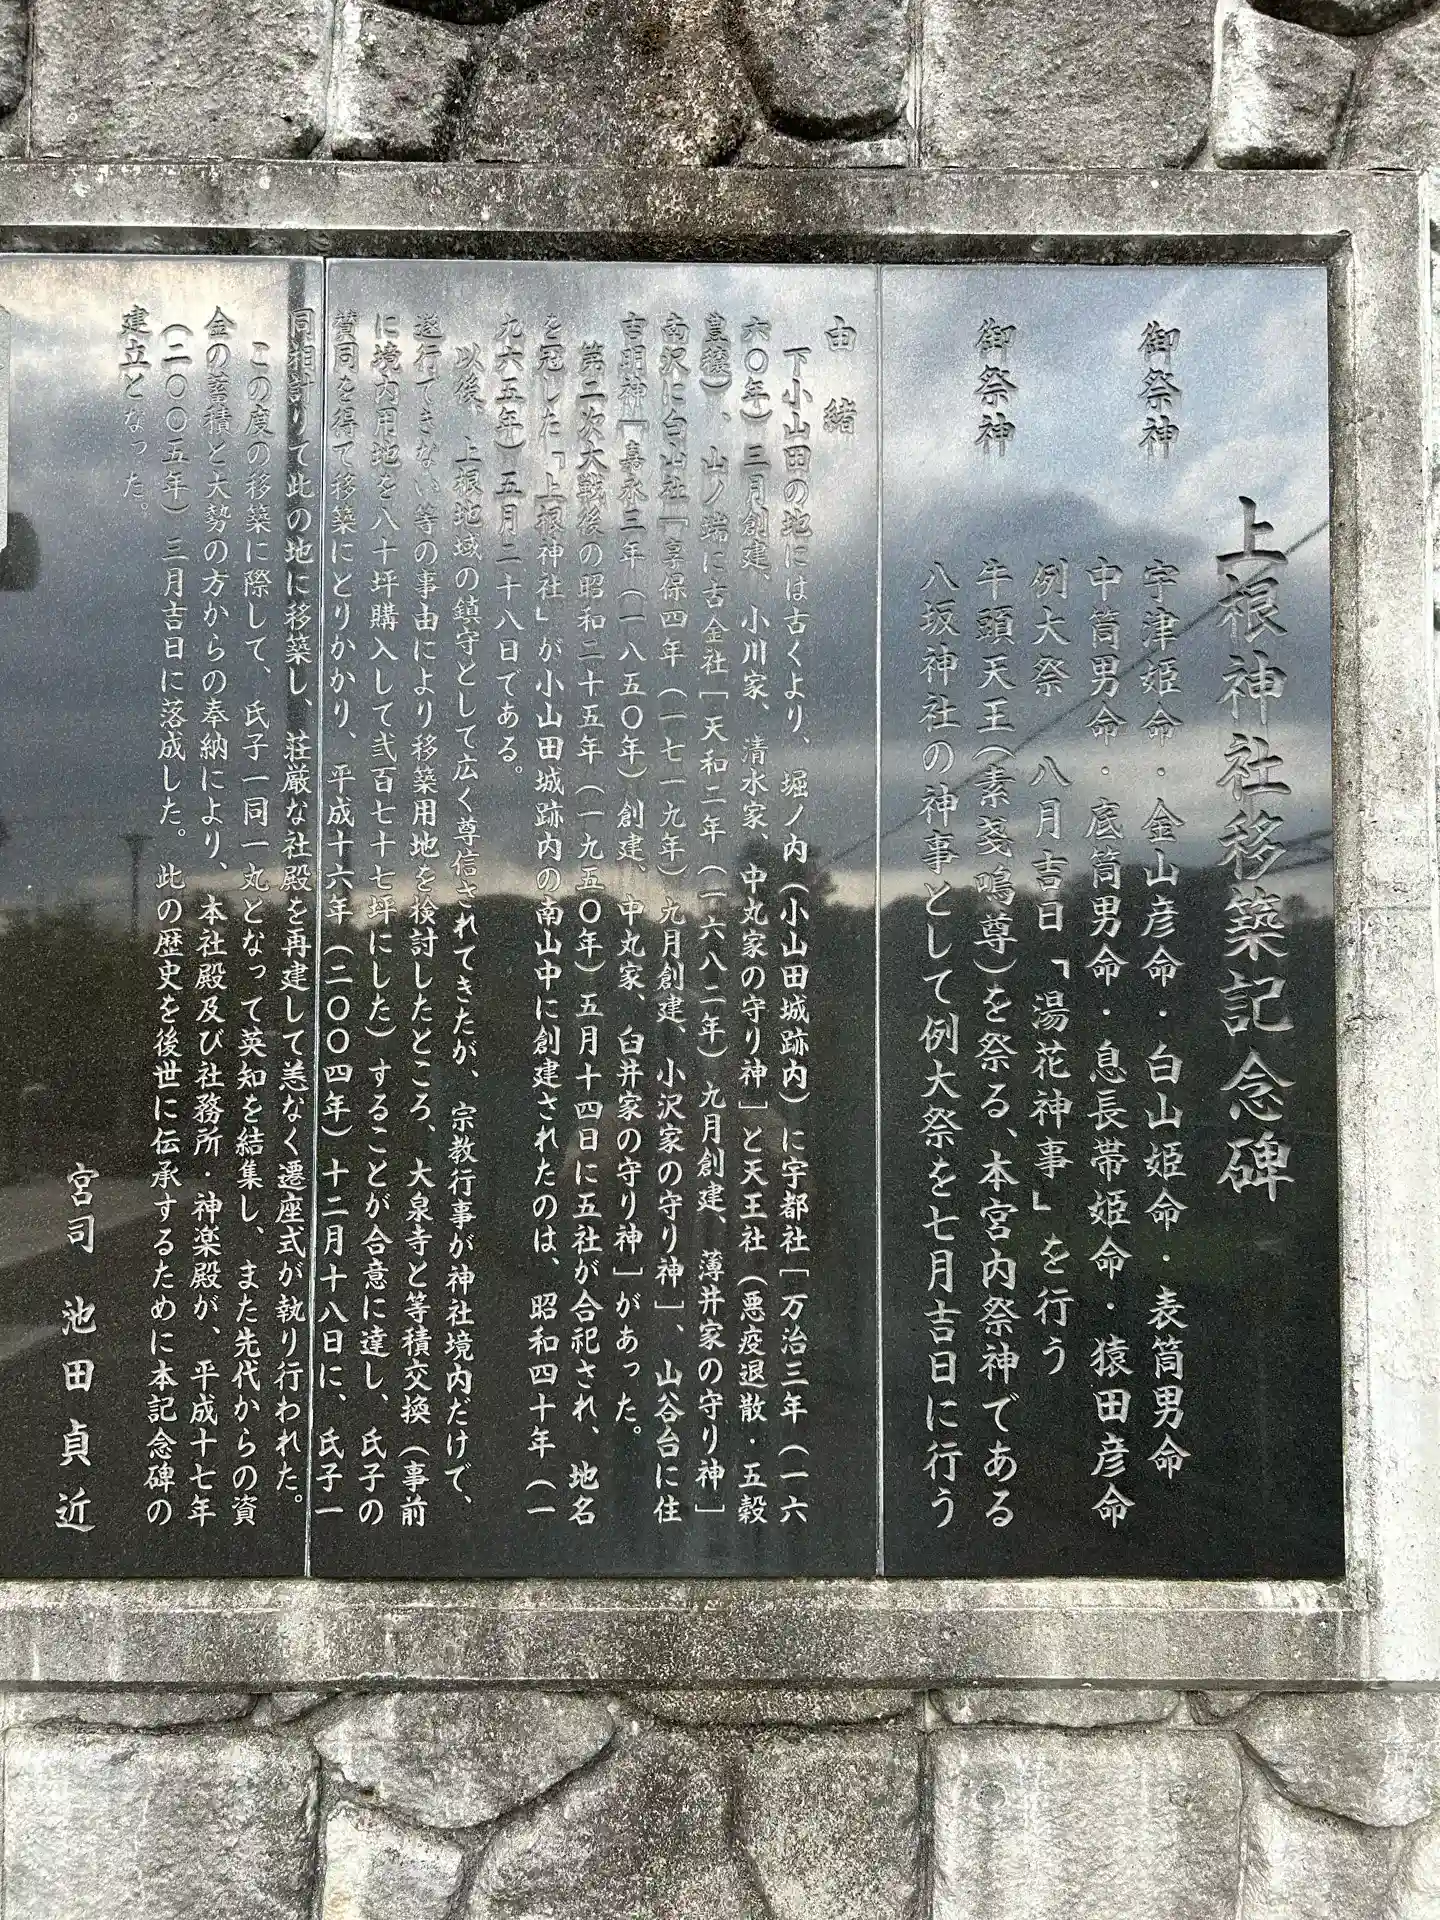 上根神社移築記念碑
御祭神　宇津姫命・金山彦命・白山姫命・表筒男命
中筒男命・底筒男命・息長帯姫命・猿田彦命
例大祭　八月吉日「湯花神事」を行う
御祭神　牛頭天王(素戔鳴尊)を祭る、本宮内祭神である
八坂神社の神事として例大祭を七月吉日に行う
由緒
下小山田の地には古くより、堀ノ内(小山田城跡内)に宇都社[万治三年(一六
六〇年)三月創建、小川家、清水家、中丸家の守り神]と天王社(悪疫退散・五穀
豊穣)、山ノ端に古金社[天和二年(一六八二年)九月創建、薄井家の守り神]
南沢に白山社[享保四年(一七一九年)九月創建、小沢家の守り神]、山谷台に住
吉明神[嘉永三年(一八五〇年)創建、中丸家、臼井家の守り神]があった。
第二次大戦後の昭和二十五年(一九五〇年)五月十四日に五社が合祀され、地名
を冠した「上根神社」が小山田城跡内の南山中に創建されたのは、昭和四十年(一
九六五年)五月二十八日である。
以後、上根地域の鎮守として広く尊信されてきたが、宗教行事が神社境内だけで、
遂行できない等の事由により移築用地を検討したところ、大泉寺と等積交換(事前
に境内用地を八十坪購入して弐百七十七坪にした)することが合意に達し、氏子の
賛同を得て移築にとりかかり、平成十六年(二〇〇四年)十二月十八日に、氏子一
同相討りて此の地に移築し、荘厳な社殿を再建して恙なく遷座式が執り行われた。
この度の移築に際して、氏子一同一丸となって英知を結集し、また先代からの資
金の蓄積と大勢の方からの奉納により、本社殿及び社務所・神楽殿が、平成十七年
(二〇〇五年)三月吉日に落成した。此の歴史を後世に伝承するために本記念碑の
建立となった。
宮司　池田貞近